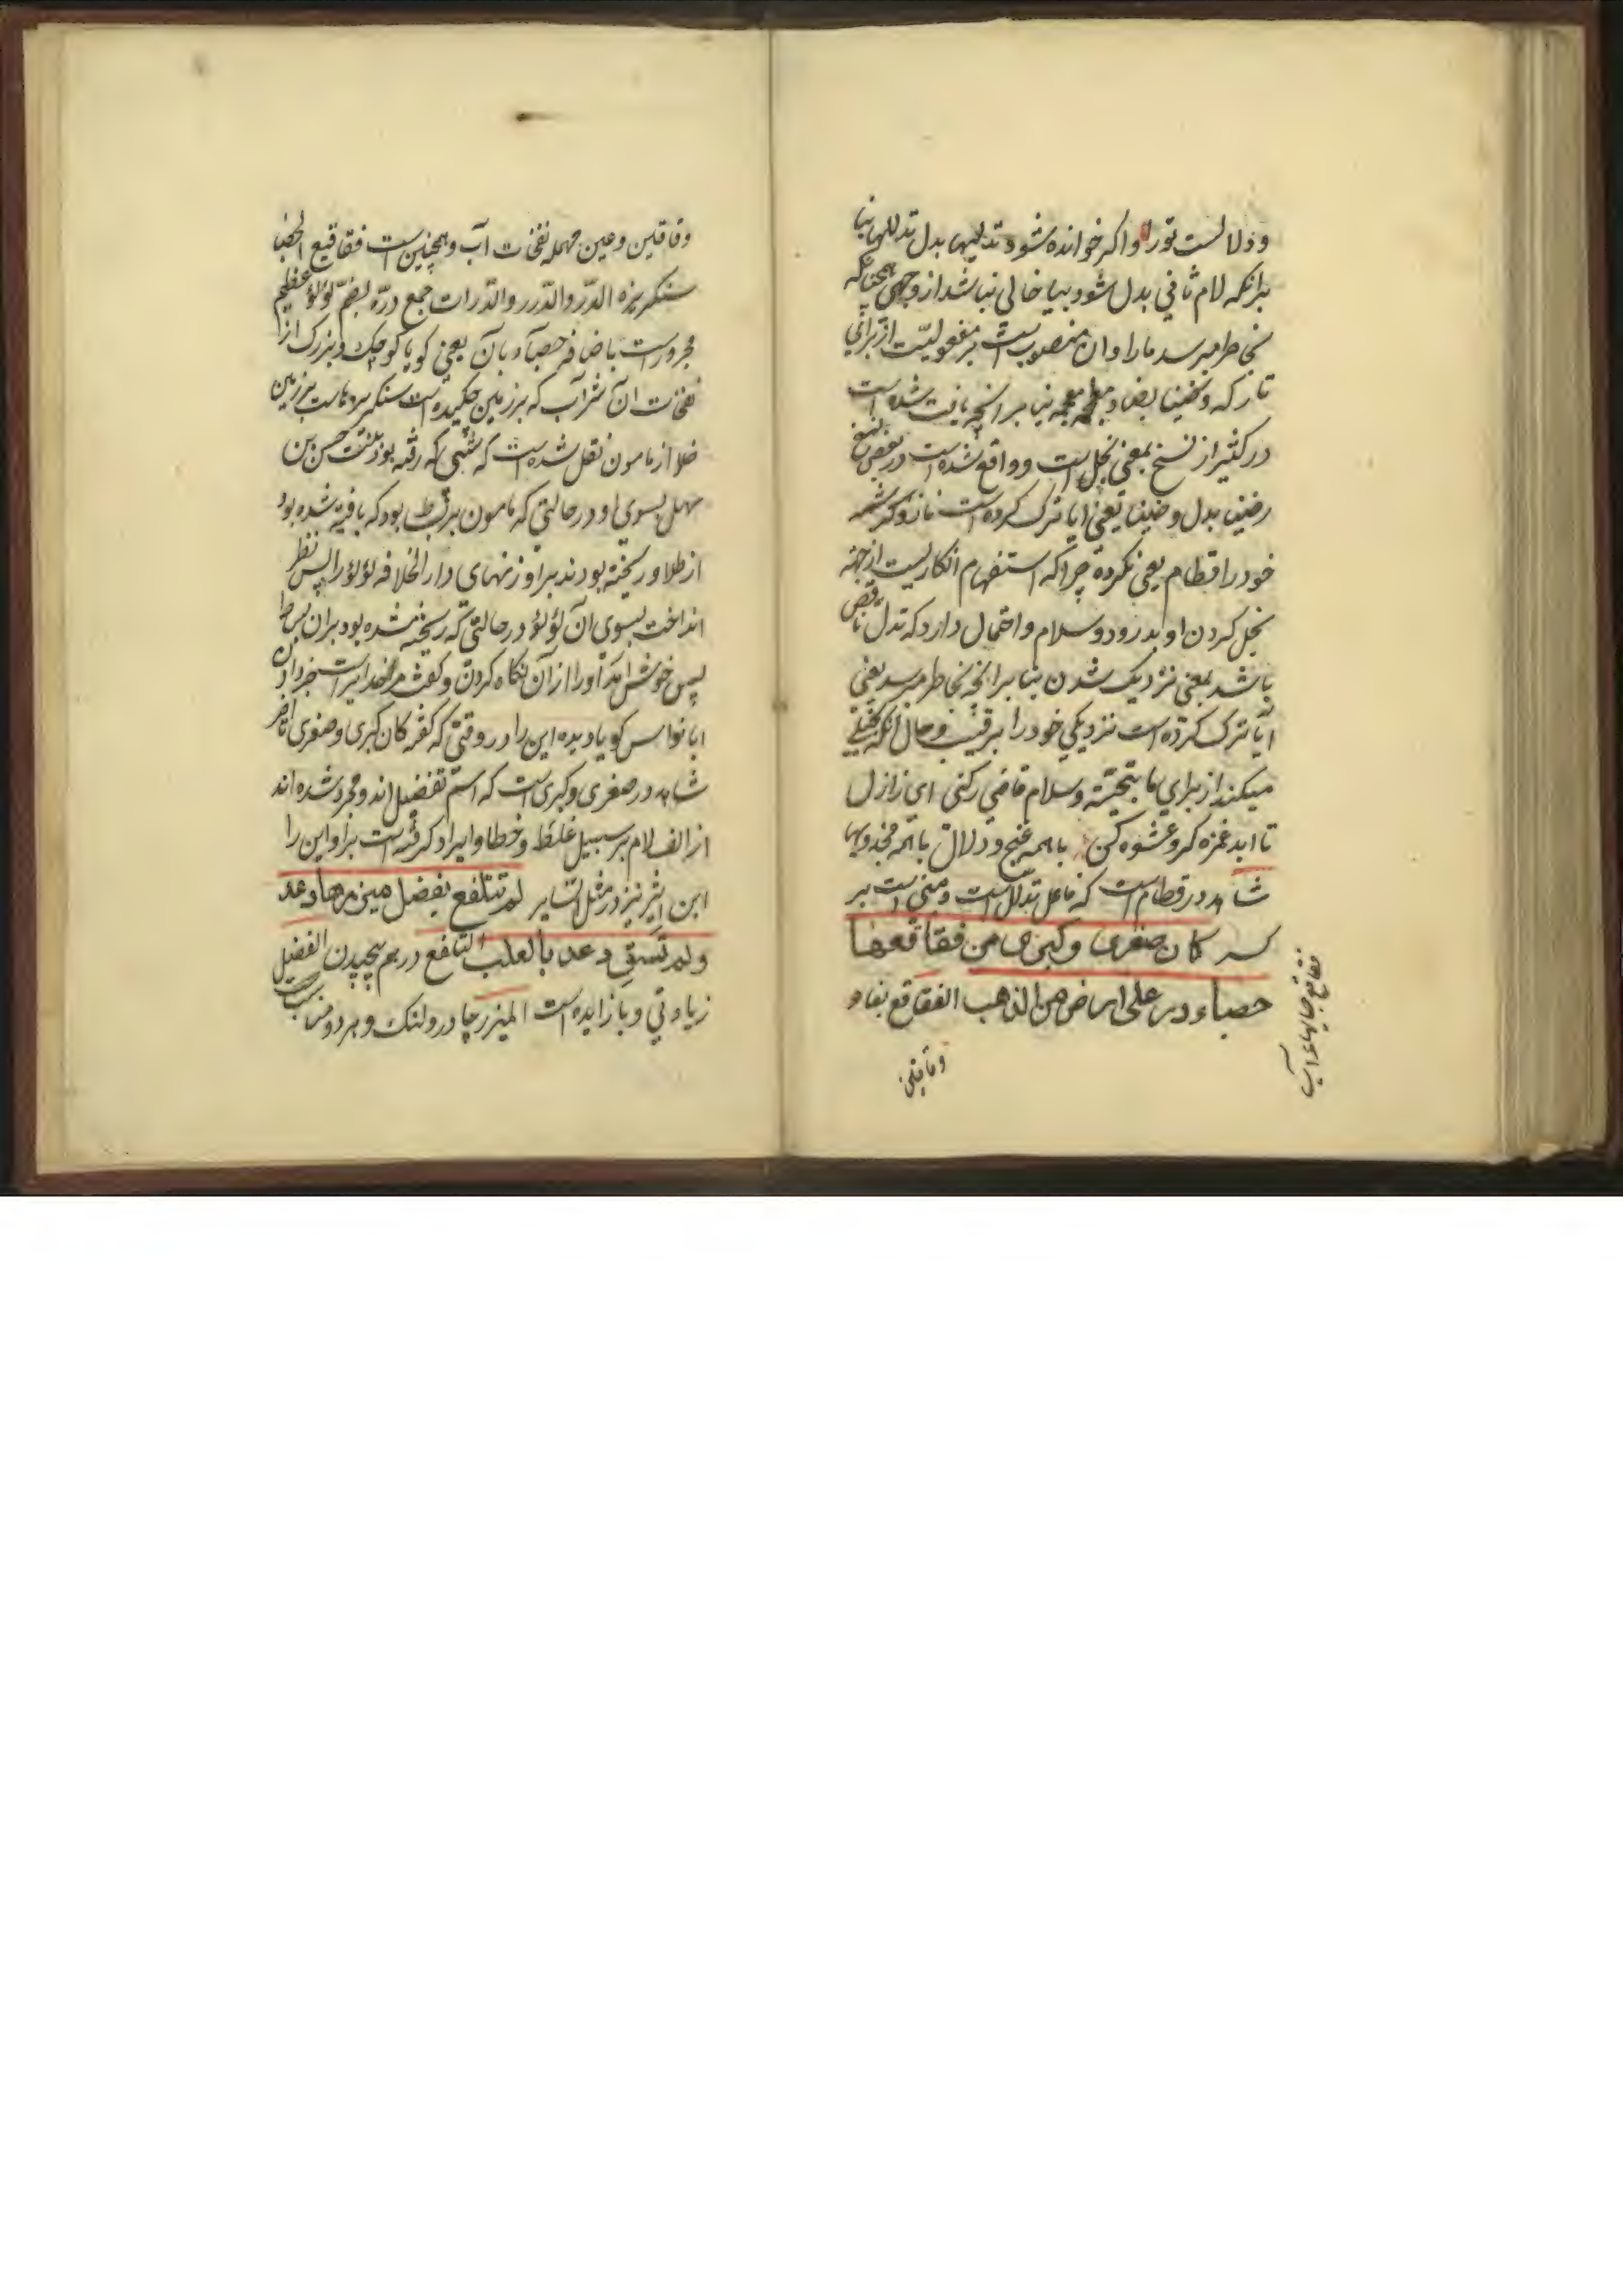 ودلالست تورا واکر خوانده شود تدلیها بدل تدللها بنا
برانکه لام ثانی بدل شود بیا خالی نباشد از وجهی همچنانکه
بخاطر میرسد مارا وان منصوبست بر مفعولیت از برای
تارکه وضینا بضاد معجمه بنا بر انچه یافت شده است
در کثیر از نسخ بمعنی بخیل است وواقع شده است در بعض نسخ
رضینا بدل وضینا یعنی ایا ترک کرده است ناز وکرشمه
خود را قطام یعنی نکرده چرا که استفهام انکاریست از جهة
بخل کردن او بدرود وسلام واحتمال دارد که تدل ناقص
باشد بمعنی نزدیک شدن بنا بر انچه بخاطر میرسد یعنی
آیا ترک کرده است نزدیکی خود را برقیب وحال انکه بخیلی
میکند از برای ما بتحیته وسلام قاضی رکنی ای ز ازل
تا ابد غمزه کر وعشوه کن با همه غنج ودلال با همه
شاهد در قطام است که فاعل تدلل است ومبنی است بر
کسر کان صغری وکبری من فقاقعها
حصباء در علی ارض من الذهب الفقاقع بفاء
وقافین
فقاقع حبابهاء آب
وقافین وعین مهمله نفخات آب وهمچنین است فقاقیع الحصبا
سنکریزه الدر والدرر والدرات جمع دره بضم لؤلؤ عظیم
مجرور است باضافه حصباء بان یعنی کویا کوچک وبزرک از
نفخات ان شراب که بر زمین چکیده است سنکریزه هاست بر زمین
طلا از مامون نقل شده است که شبی که رفته بود بنت حسن بن
سهل بسوی او در حالتی که مامون بر بساط بود که بافته شده بود
از طلا وریخته بودند بر او زنهای دار الخلافه لؤلؤ را پس نظر
انداخت بسوی آن لؤلؤ در حالتی که ریخته شده بود بران بساط
پس خوش امد او را از آن نکاه کردن وکفت مر خدایراست
ابا نواس کویا دیده این را در وقتی که کفته کان کبری وصغری تا اخر
شاهد در صغری وکبری است که اسم تفضیل اند ومجرد شده اند
از الف لام بر سبیل غلط وخطا وایراد کرفته است بر او این را
ابن اثیر نیز در مثل السایر لم تتلفع بفضل میزرها دعد
ولم تسق دعد بالعلب التلفع درهم پیچیدن الفضل
زیادتی وباز ایده است المیزر چادر ولنک وهردو